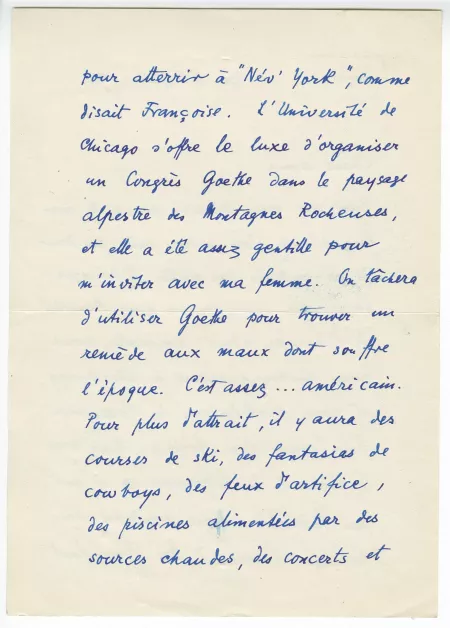 pour atterrir à "Név' York", comme
disait Françoise. L'Université de
Chicago s'offre le luxe d'organiser
un Congrès Goethe dans le paysage
alpestre des Montagnes Rocheuses,
et elle a été assez gentille pour
m'inviter avec ma femme. On tâchera
d'utiliser Goethe pour trouver un
remède aux maux dont souffre
l'époque. C'est assez ... américain.
Pour plus d'attrait, il y aura des
courses de ski, des fantasias de
cowboys, des feux d'artifice,
des piscines alimentées par des
sources chaudes, des concerts et